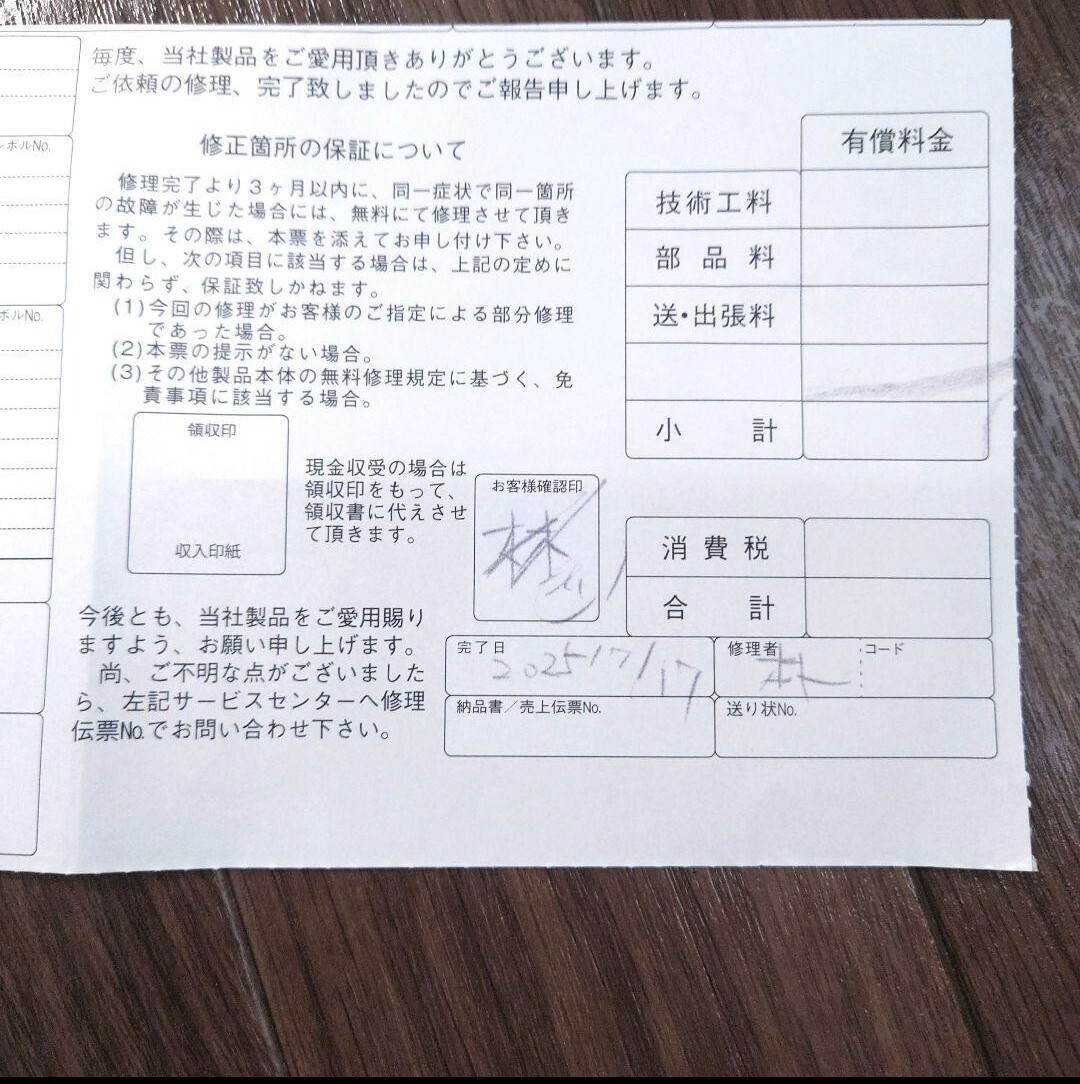 毎度、当社製品をご愛用頂きありがとうございます。
ご依頼の修理、完了致しましたのでご報告申し上げます。
ボルNo.
ボルNo.
修正箇所の保証について
修理完了より3ヶ月以内に、同一症状で同一箇所
の故障が生じた場合には、無料にて修理させて頂き
ます。その際は、本票を添えてお申し付け下さい。
但し、次の項目に該当する場合は、上記の定めに
関わらず、保証致しかねます。
(1)今回の修理がお客様のご指定による部分修理
であった場合。
(2)本票の提示がない場合。
(3)その他製品本体の無料修理規定に基づく、免
責事項に該当する場合。
有償料金
技術工料
部品料
送・出張料
小計
領収印
収入印紙
現金収受の場合は
領収印をもって、
領収書に代えさせ
て頂きます。
お客様確認印
林
消費税
合計
今後とも、当社製品をご愛用賜り
ますよう、お願い申し上げます。
尚、ご不明な点がございました
ら、左記サービスセンターへ修理
伝票No.でお問い合わせ下さい。
完了日
2025/7/17
修理者
コード
納品書／売上伝票No.
送り状No.